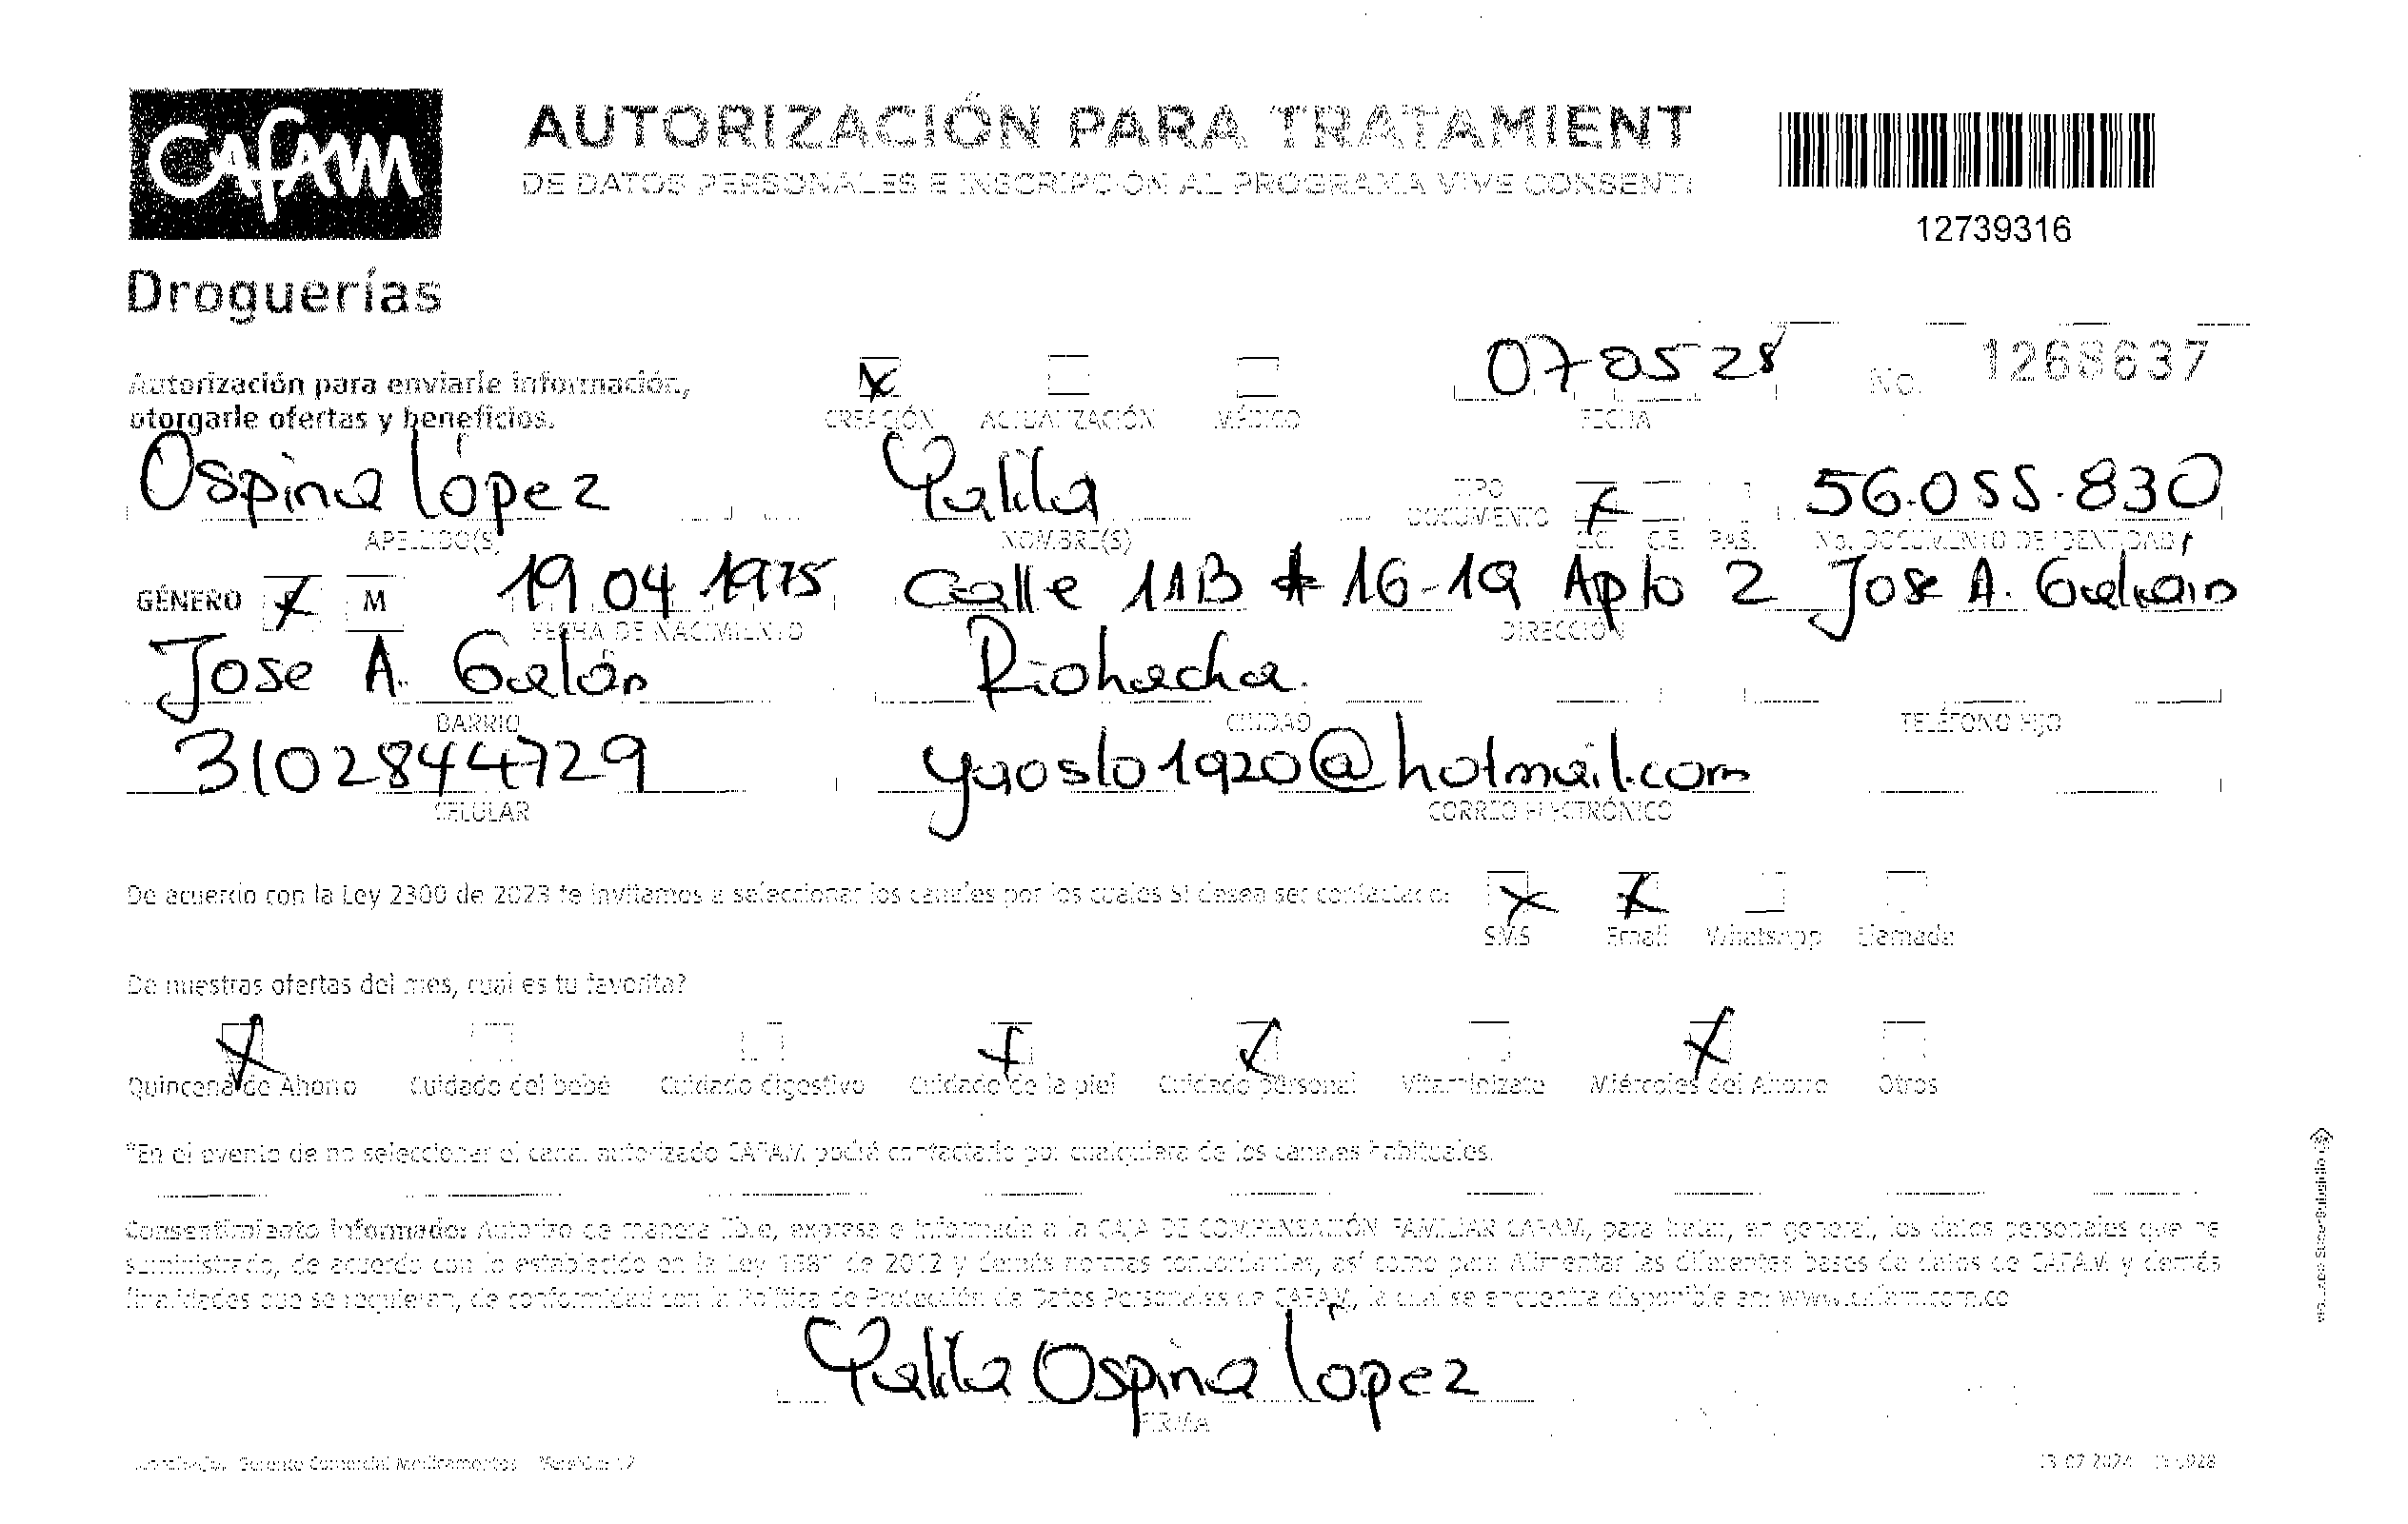 Cafam
Droguerías
AUTORIZACIÓN PARA TRATAMIENT
DE DATOS PERSONALES E INSCRIPCIÓN AL PROGRAMA VIVE CONSENTI
12739316
Autorización para enviarle información,
otorgarle ofertas y beneficios.
CREACIÓN ACTUALIZACIÓN MÉDICO
07-05 25
FECHA
No. 1268637
Ospina López Yalila 56.055.830
APELLIDO(S) NOMBRE(S) TIPO DOCUMENTO C.C. C.E. PAS. No. DOCUMENTO DE IDENTIDAD
GÉNERO F M 19 04 1975 Calle 11B # 16-19 Apto 2 Jose A. Galán
FECHA DE NACIMIENTO DIRECCIÓN
Jose A. Galán Riohacha.
BARRIO CIUDAD TELÉFONO FIJO
3102844729 yaoslo1920@hotmail.com
CELULAR CORREO ELECTRÓNICO
De acuerdo con la Ley 2300 de 2023 te invitamos a seleccionar los canales por los cuales SI desea ser contactado:
SMS Email WhatsApp Llamada
De nuestras ofertas del mes, cual es tu favorita?
Quincena de Ahorro Cuidado del bebé Cuidado digestivo Cuidado de la piel Cuidado personal Vitaminízate Miércoles del Ahorro Otros
*En el evento de no seleccionar el canal autorizado CAFAM podrá contactarlo por cualquiera de los canales habituales.
Consentimiento informado: Autorizo de manera libre, expresa e informada a la CAJA DE COMPENSACIÓN FAMILIAR CAFAM, para tratar, en general, los datos personales que he
suministrado, de acuerdo con lo establecido en la Ley 1581 de 2012 y demás normas concordantes, así como para Alimentar las diferentes bases de datos de CAFAM y demás
finalidades que se requieran, de conformidad con la Política de Protección de Datos Personales de CAFAM, la cual se encuentra disponible en: www.cafam.com.co
Yalila Ospina López
FIRMA
Gerente Comercial Medicamentos